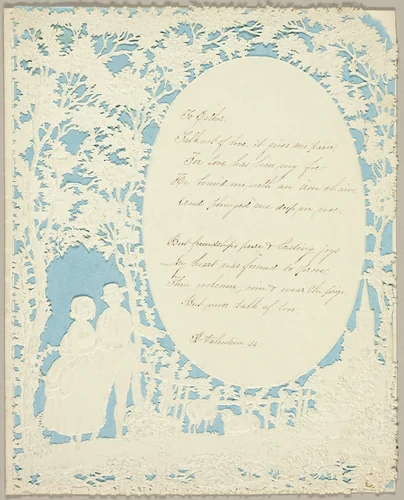 To Esther
Talk not of love, it gives me pain
For love has been my foe
He bound me with an iron chain
And plunged me deep in woe.
But friendship's pure & lasting joys
My heart was formed to prove
Then welcome, win & wear the prize
But never talk of love
A Valentine